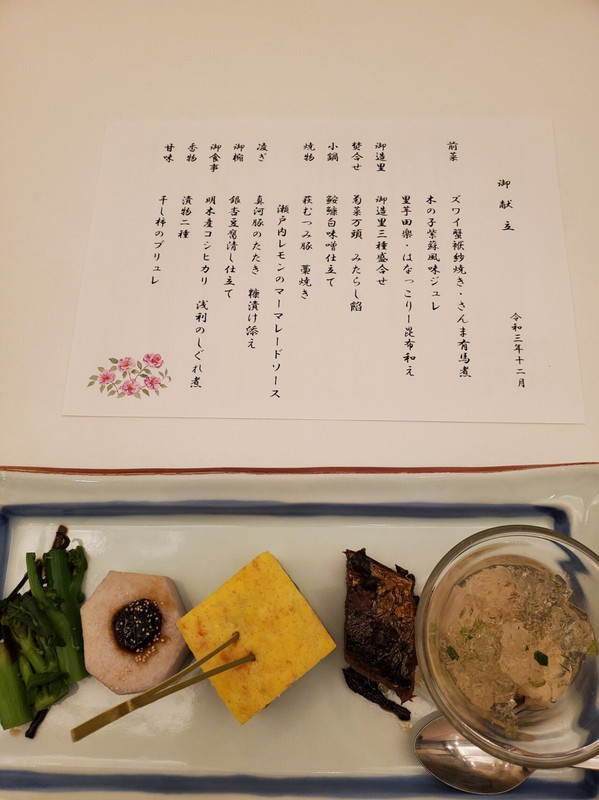 令和三年十二月
御献立
前菜 ズワイ蟹袱紗焼き・さんま有馬煮
木の子紫蘇風味ジュレ
里芋田楽・はなっこりー昆布和え
御造里 御造里三種盛合せ
焚合せ 菊菜万頭 みたらし餡
小鍋 鮟鱇白味噌仕立て
焼物 萩むつみ豚 藁焼き
瀬戸内レモンのマーマレードソース
凌ぎ 真河豚のたたき 糠漬け添え
御椀 銀杏豆腐清し仕立て
御食事 明木産コシヒカリ 浅利のしぐれ煮
香物 漬物二種
甘味 干し柿のブリュレ